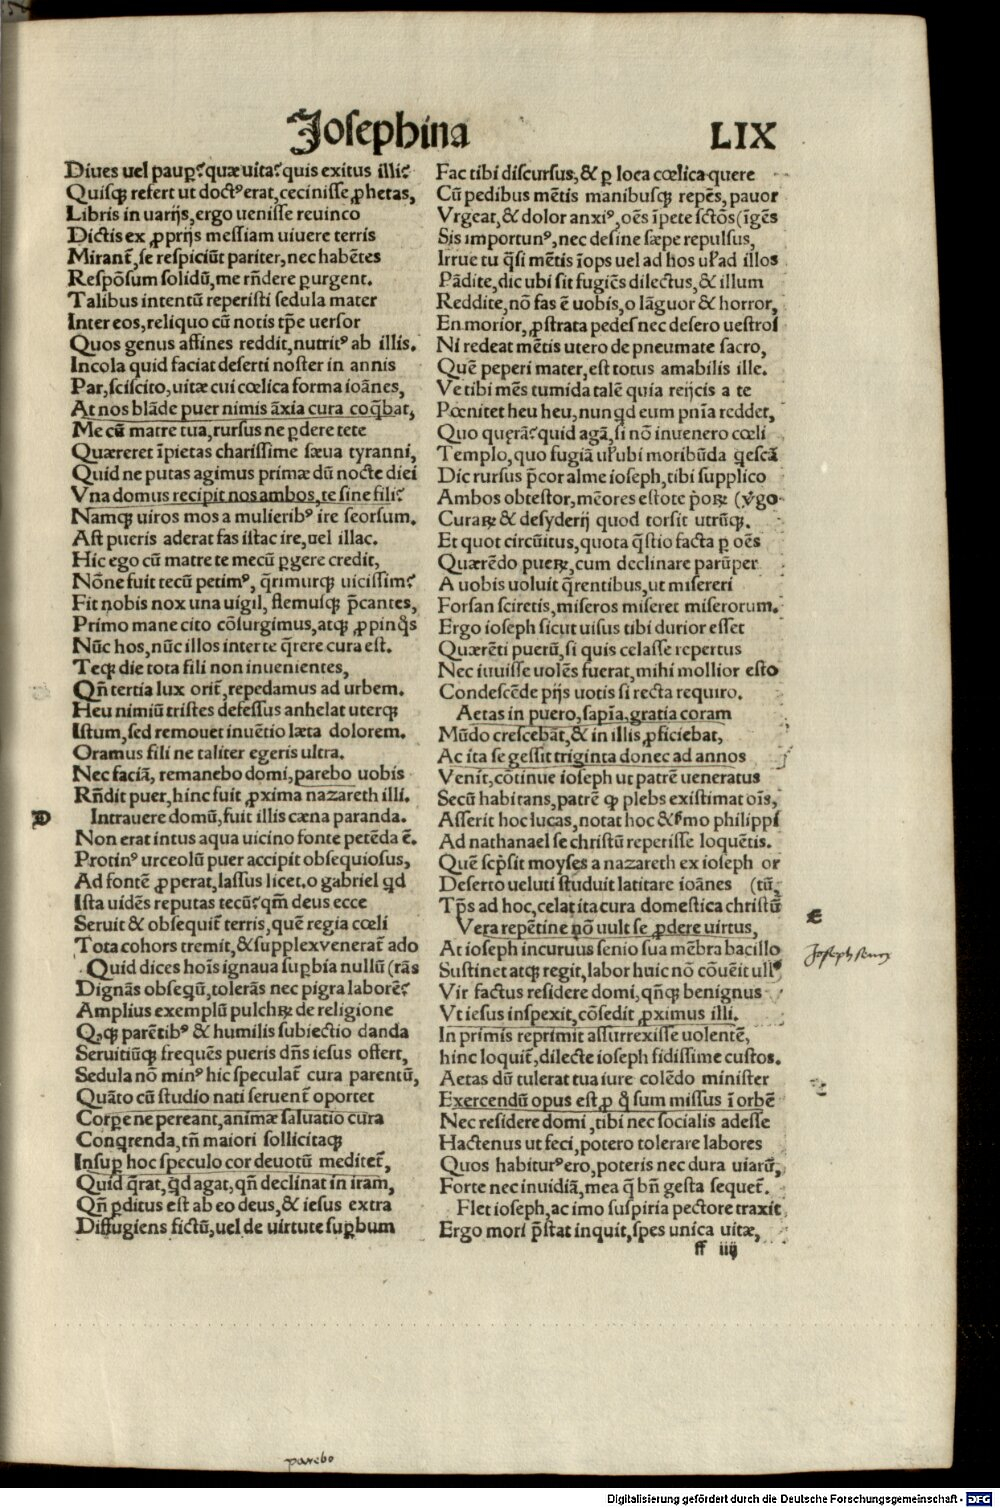 Josephina
LIX
Diues uel paup̲? quæ uita? quis exitus illi?
Quisqꝫ refert ut doctꝰ erat, cecinisse ꝓphetas,
Libris in uarijs, ergo uenisse reuinco
Dictis ex ꝓprijs messiam uiuere terris
Mirant᷑, se respiciūt pariter, nec habētes
Respōsum solidū, me rn̄dere purgent.
Talibus intentū reperisti sedula mater
Inter eos, reliquo cū notis tp̄e uersor
Quos genus affines reddit, nutritꝰ ab illis.
Incola quid faciat deserti noster in annis
Par, sciscito, uitæ cui cœlica forma ioānes,
At nos blāde puer nimis āxia cura coq̄bat,
Me cū matre tua, rursus ne ꝑdere tete
Quæreret īpietas charissime sæua tyranni,
Quid ne putas agimus primæ dū nocte diei
Vna domus recipit nos ambos, te sine fili?
Namqꝫ uiros mos a mulieribꝰ ire seorsum.
Ast pueris aderat fas istac ire, uel illac.
Hic ego cū matre te mecū ꝑgere credit,
Nōne fuit tecū petimꝰ, q̄rimurqꝫ uicissim?
Fit nobis nox una uigil, flemusqꝫ p̄cantes,
Primo mane cito cōsurgimus, atqꝫ ꝓpinq̊s
Nūc hos, nūc illos inter te q̄rere cura est.
Teqꝫ die tota fili non inuenientes,
Qn̄ tertia lux orit᷑, repedamus ad urbem.
Heu nimiū tristes defessus anhelat uterqꝫ
Istum, sed remouet inuētio læta dolorem.
Oramus fili ne taliter egeris ultra.
Nec faciā, remanebo domi, parebo uobis
Rn̄dit puer, hinc fuit ꝓxima nazareth illi.
D
Intrauere domū, fuit illis cæna paranda.
Non erat intus aqua uicino fonte petēda ē.
Protinꝰ urceolū puer accipit obsequiosus,
Ad fontē ꝓperat, lassus licet. o gabriel qd
Ista uidēs reputas tecū? qm̄ deus ecce
Seruit & obsequit᷑ terris, quē regia cœli
Tota cohors tremit, & supplex venerat᷑ ado
Quid dices hoīs ignaua suꝑbia nullū (rās
Dignās obseqū, tolerās nec pigra laborē?
Amplius exemplū pulchrꝝ de religione
Qꝫqꝫ parētibꝰ & humilis subiectio danda
Seruitiūqꝫ frequēs pueris dn̄s iesus offert,
Sedula nō minꝰ hic speculat᷑ cura parentū,
Quāto cū studio nati seruent᷑ oportet
Corꝑe ne pereant, animæ saluatio cura
Conqrenda, tn̄ maiori sollicitaqꝫ
Insuꝑ hoc speculo cor deuotū meditet᷑,
Quid q̄rat, qd agat, qn̄ declinat in iram,
Qn̄ ꝑditus est ab eo deus, & iesus extra
Diffugiens fictū, uel de uirtute suꝑbum
Fac tibi discursus, & ꝑ loca cœlica quere
Cū pedibus mētis manibusqꝫ repēs, pauor
Vrgeat, & dolor anxiꝰ, oēs īpete sctōs (īgēs
Sis importunꝰ, nec desine sæpe repulsus,
Irrue tu q̄si mētis īops uel ad hos uł ad illos
Pādite, dic ubi sit fugiēs dilectus, & illum
Reddite, nō fas ē uobis, o lāguor & horror,
En morior, ꝓstrata pedes nec desero uestros
Ni redeat mētis utero de pneumate sacro,
Quē peperi mater, est totus amabilis ille.
Ve tibi mēs tumida talē quia reijcis a te
Pœnitet heu heu, nunqd eum pnīa reddet,
Quo querā? quid agā, si nō inuenero cœli
Templo, quo fugiā uł ubi moribūda qescā
Dic rursus p̄cor alme ioseph, tibi supplico
Ambos obtestor, mēores estote p̄orꝝ (v̊go
Curaꝝ & desyderij quod torsit utrūqꝫ.
Et quot circūitus, quota q̄stio facta ꝑ oēs
Quærēdo pueꝝ, cum declinare parūper
A uobis uoluit q̄rentibus, ut misereri
Forsan sciretis, miseros miseret miserorum.
Ergo ioseph sicut uisus tibi durior esset
Quærēti puerū, si quis celasse repertus
Nec iuuisse uolēs fuerat, mihi mollior esto
Condescēde pijs uotis si recta requiro.
Aetas in puero, sapīa, gratia coram
Mūdo crescebāt, & in illis ꝓficiebat,
Ac ita se gessit triginta donec ad annos
Venit, cōtinue ioseph ut patrē ueneratus
Secū habitans, patrē qꝫ plebs existimat oīs,
Asserit hoc lucas, notat hoc & s̄mo philippi
Ad nathanael se christū reperisse loquētis.
Quē sc̄psit moyses a nazareth ex ioseph or
Deserto ueluti studuit latitare ioānes (tū,
Tp̄s ad hoc, celat ita cura domestica christū
E
Vera repētine nō uult se ꝓdere uirtus,
At ioseph incuruus senio sua mēbra bacillo
Joseph senex
Sustinet atqꝫ regit, labor huic nō cōuēit ullꝰ
Vir factus residere domi, qn̄qꝫ benignus
Vt iesus inspexit, cōsedit ꝓximus illi.
In primis reprimit assurrexisse uolentē,
hinc loquit᷑, dilecte ioseph fidissime custos.
Aetas dū tulerat tua iure colēdo minister
Exercendū opus est, ꝑ q̊ sum missus ī orbē
Nec residere domi, tibi nec socialis adesse
Hactenus ut feci, potero tolerare labores
Quos habiturꝰ ero, poteris nec dura uiarū,
Forte nec inuidiā, mea q̄ bn̄ gesta sequet᷑.
Flet ioseph, ac imo suspiria pectore traxit
Ergo mori p̄stat inquit, spes unica uitæ,
ff iiij
parebo
Digitalisierung gefördert durch die Deutsche Forschungsgemeinschaft - DFG